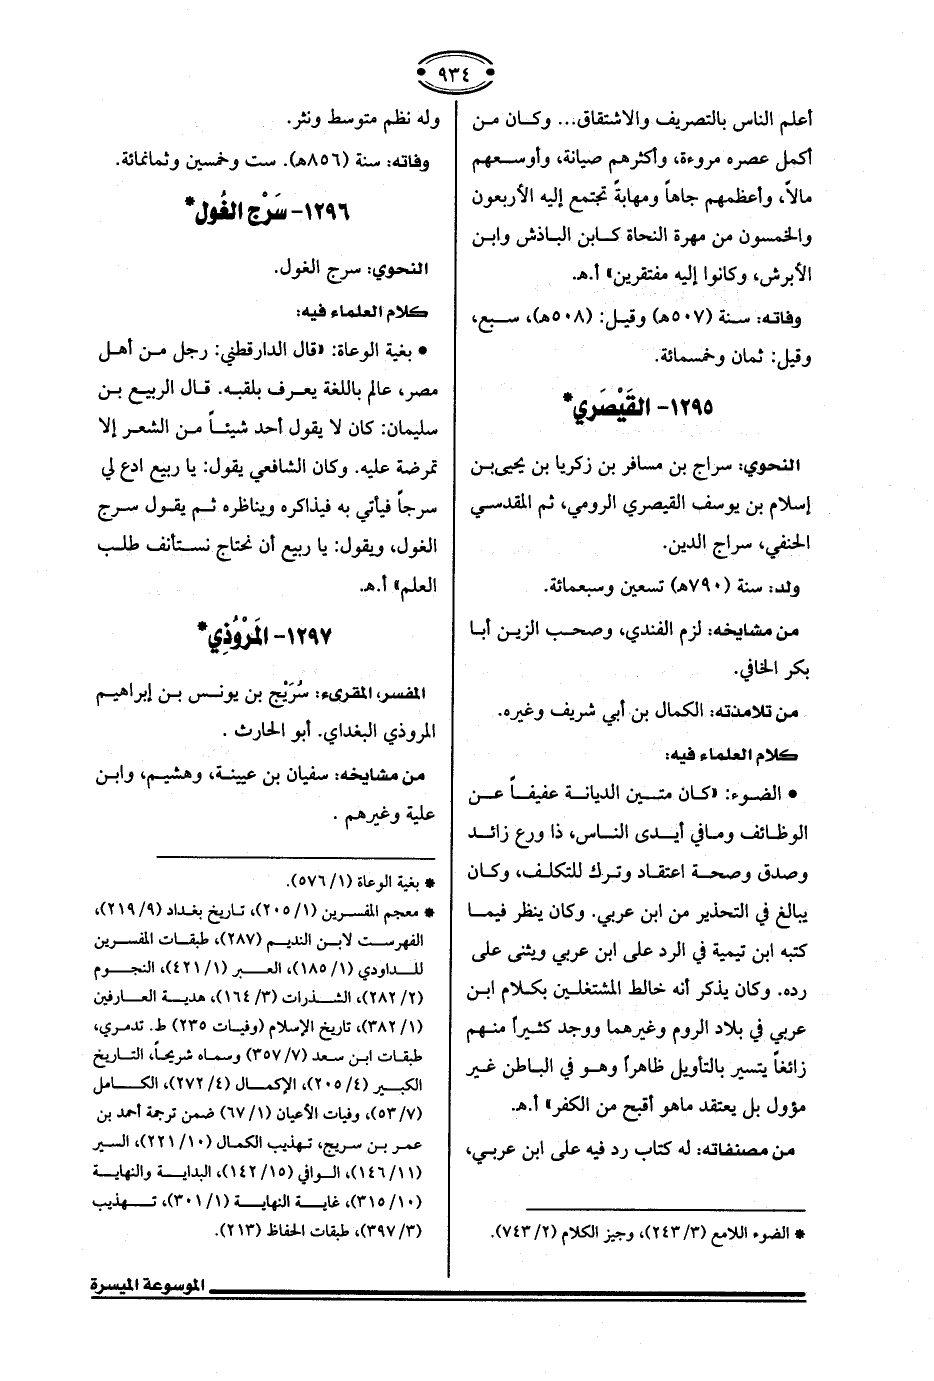 ٩٣٤
أعلم الناس بالتصريف والاشتقاق... وكان من
أكمل عصره مروءة، وأكثرهم صيانة، وأوسعهم
مالاً، وأعظمهم جاهاً ومهابةً تجتمع إليه الأربعون
والخمسون من مهرة النحاة كابن الباذش وابن
الأبرش، وكانوا إليه مفتقرين» أ.هـ.
وفاته: سنة (٥٠٧هـ) وقيل: (٥٠٨هـ)، سبع،
وقيل: ثمان وخمسمائة.
١٢٩٥- القَيْصَري*
النحوي: سراج بن مسافر بن زكريا بن يحيى بن
إسلام بن يوسف القيصري الرومي، ثم المقدسي
الحنفي، سراج الدين.
ولد: سنة (٧٩٠هـ) تسعين وسبعمائة.
من مشايخه: لزم الفندي، وصحب الزين أبا
بكر الخافي.
من تلامذته: الكمال بن أبي شريف وغيره.
كلام العلماء فيه:
• الضوء: «كان متين الديانة عفيفاً عن
الوظائف ومافي أيدى الناس، ذا ورع زائد
وصدق وصحة اعتقاد وترك للتكلف، وكان
يبالغ في التحذير من ابن عربي. وكان ينظر فيما
كتبه ابن تيمية في الرد على ابن عربي ويثنى على
رده. وكان يذكر أنه خالط المشتغلين بكلام ابن
عربي في بلاد الروم وغيرهما ووجد كثيراً منهم
زائغاً يتسير بالتأويل ظاهراً وهو في الباطن غير
مؤول بل يعتقد ماهو أقبح من الكفر» أ.هـ.
من مصنفاته: له كتاب رد فيه على ابن عربي،
* الضوء اللامع (٣/ ٢٤٣)، وجيز الكلام (٢/ ٧٤٣).
وله نظم متوسط ونثر.
وفاته: سنة (٨٥٦هـ). ست وخمسين وثمانمائة.
١٢٩٦- سَرْج الغُول*
النحوي: سرج الغول.
كلام العلماء فيه:
• بغية الوعاة: «قال الدارقطني: رجل من أهل
مصر، عالم باللغة يعرف بلقبه. قال الربيع بن
سليمان: كان لا يقول أحد شيئاً من الشعر إلا
تمرضة عليه. وكان الشافعي يقول: يا ربيع ادع لي
سرجاً فيأتي به فيذاكره ويناظره ثم يقول سرج
الغول، ويقول: يا ربيع أن نحتاج نستأنف طلب
العلم» أ.هـ.
١٢٩٧- المَرْوُذي*
المفسر، المقرىء: سُرَيْج بن يونس بن إبراهيم
المروذي البغداي. أبو الحارث .
من مشايخه: سفيان بن عيينة، وهشيم، وابن
علية وغيرهم .
* بغية الوعاة (١/ ٥٧٦).
* معجم المفسرين (١/ ٢٠٥)، تاريخ بغداد (٩/ ٢١٩)،
الفهرست لابن النديم (٢٨٧)، طبقات المفسرين
للداودي (١/ ١٨٥)، العبر (١/ ٤٢١)، النجوم
(٢/ ٢٨٢)، الشذرات (٣/ ١٦٤)، هدية العارفين
(١/ ٣٨٢)، تاريخ الإسلام (وفيات ٢٣٥) ط. تدمري،
طبقات ابن سعد (٧/ ٣٥٧) وسماه شريحاً، التاريخ
الكبير (٤/ ٢٠٥)، الإكمال (٤/ ٢٧٢)، الكامل
(٧/ ٥٣)، وفيات الأعيان (١/ ٦٧) ضمن ترجمة أحمد بن
عمر بن سريج، تهذيب الكمال (١٠/ ٢٢١)، السير
(١١/ ١٤٦)، الوافي (١٥/ ١٤٢)، البداية والنهاية
(١٠/ ٣١٥)، غاية النهاية (١/ ٣٠١)، تهذيب
(٣/ ٣٩٧)، طبقات الحفاظ (٢١٣).
الموسوعة الميسرة